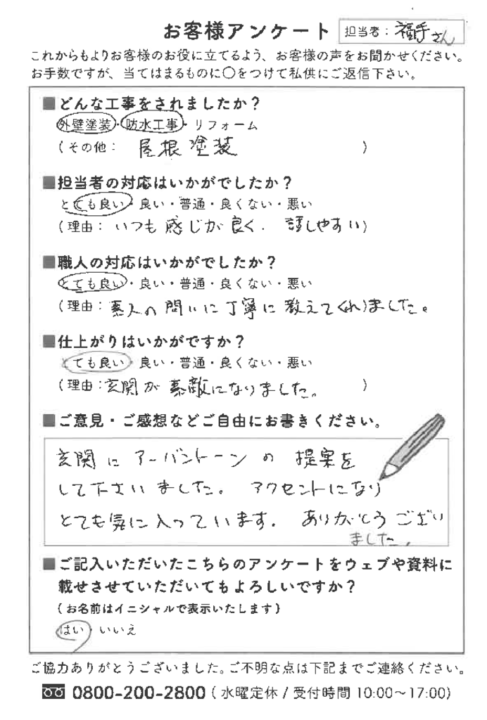 お客様アンケート 担当者: 福手さん
これからもよりお客様のお役に立てるよう、お客様の声をお聞かせください。
お手数ですが、当てはまるものに〇をつけて私供にご返信下さい。
■どんな工事をされましたか？
外壁塗装・防水工事・リフォーム
(その他: 屋根塗装 )
■担当者の対応はいかがでしたか？
とても良い・良い・普通・良くない・悪い
(理由: いつも感じが良く. 話しやすい)
■職人の対応はいかがでしたか？
とても良い・良い・普通・良くない・悪い
(理由: 素人の問いに丁寧に教えてくれました。)
■仕上がりはいかがですか？
とても良い・良い・普通・良くない・悪い
(理由: 玄関が素敵になりました。 )
■ご意見・ご感想などご自由にお書きください。
玄関にアーバントーンの提案を
して下さいました。 アクセントになり
とても気に入っています. ありがとうござい
ました。
■ご記入いただいたこちらのアンケートをウェブや資料に
載せさせていただいてもよろしいですか？
(お名前はイニシャルで表示いたします)
はい・いいえ
ご協力ありがとうございました。ご不明な点は下記までご連絡ください。
0800-200-2800 (水曜定休/受付時間 10:00〜17:00)